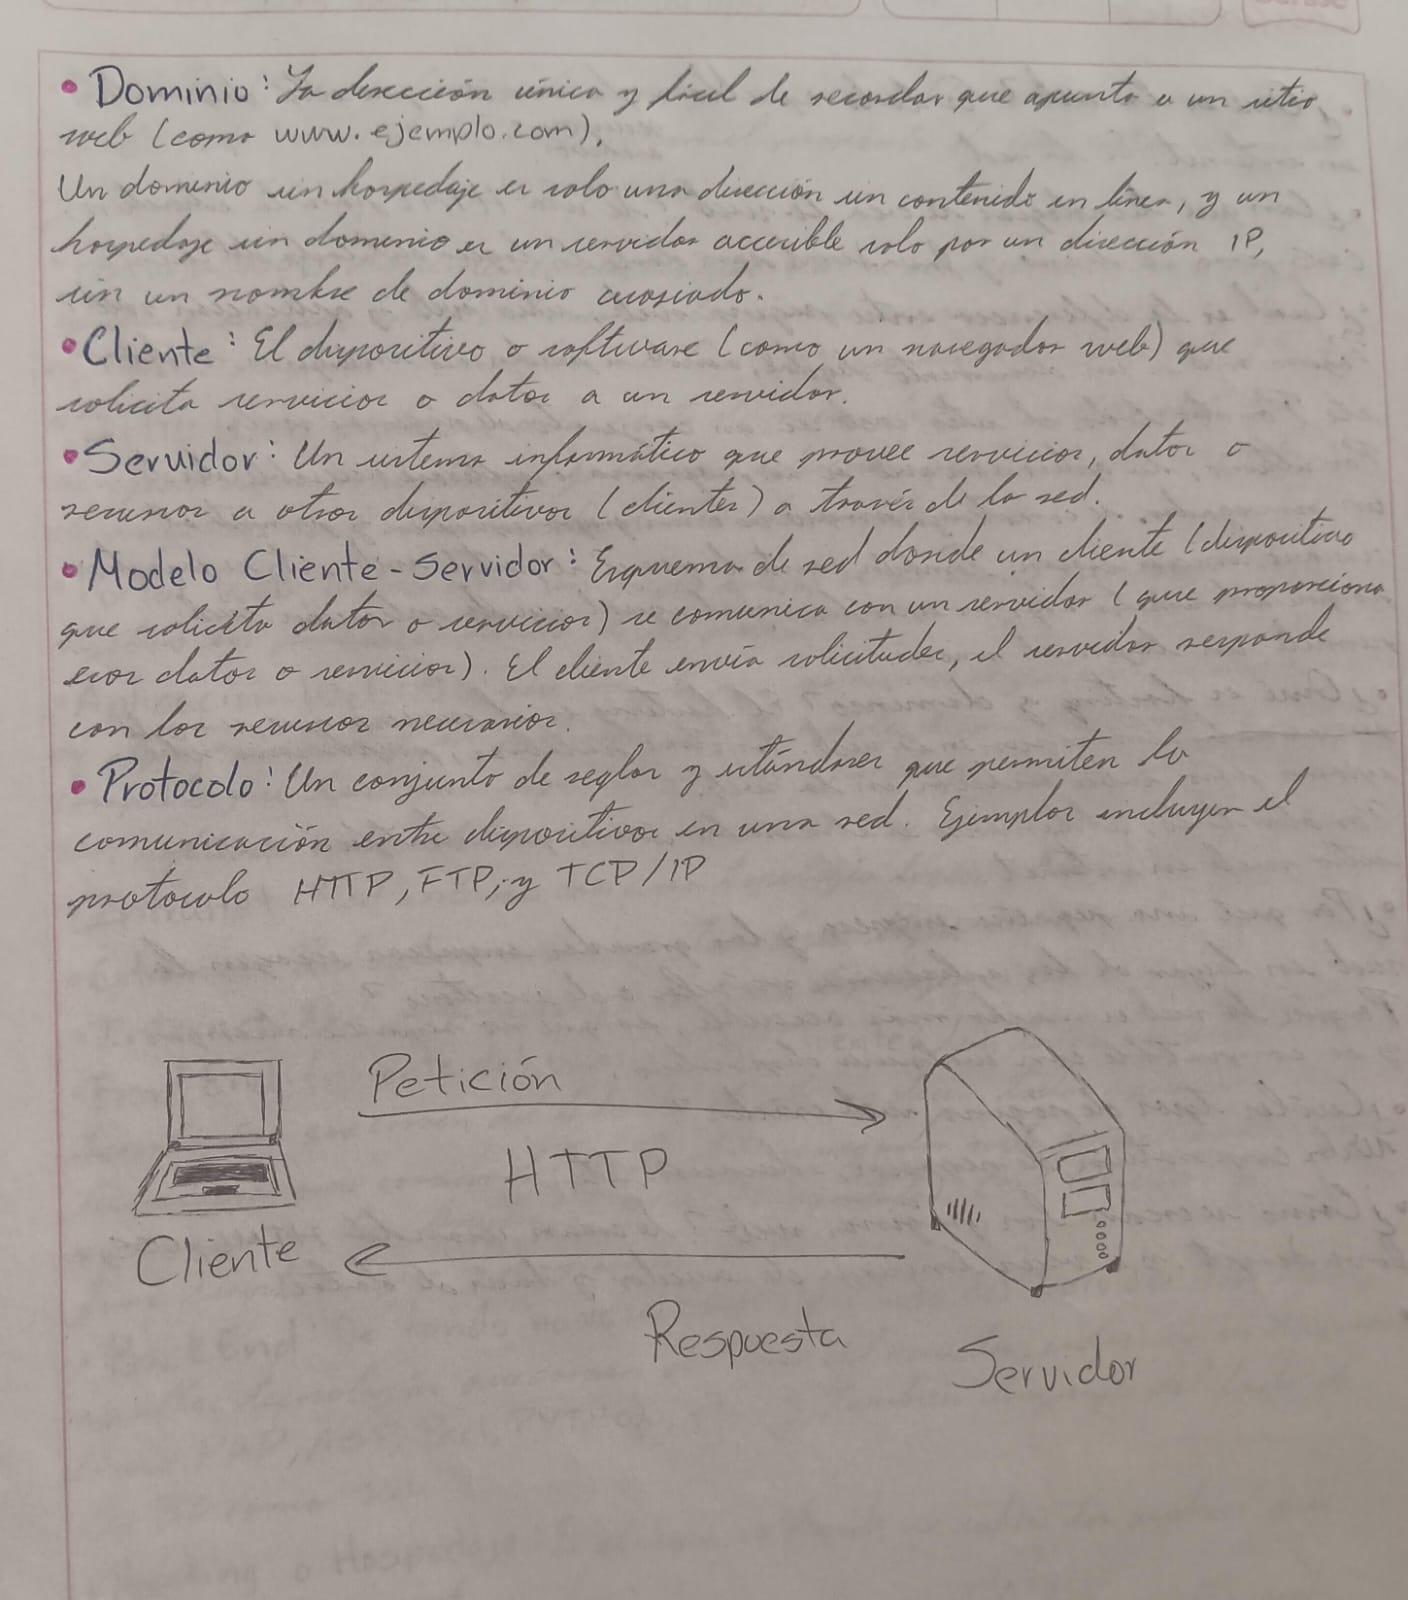 • Dominio: La dirección única y fácil de recordar que apunta a un sitio
web (como www.ejemplo.com).
Un dominio sin hospedaje es solo una dirección sin contenido en línea, y un
hospedaje sin dominio es un servidor accesible solo por un dirección IP,
sin un nombre de dominio asosiado.
• Cliente: El dispositivo o software (como un navegador web) que
solicita servicios o datos a un servidor.
• Servidor: Un sistema informático que provee servicios, datos o
recursos a otros dispositivos (clientes) a través de la red.
• Modelo Cliente-Servidor: Esquema de red donde un cliente (dispositivo
que solicita datos o servicios) se comunica con un servidor (que proporciona
esos datos o servicios). El cliente envía solicitudes, el servidor responde
con los recursos necesarios.
• Protocolo: Un conjunto de reglas y estándares que permiten la
comunicación entre dispositivos en una red. Ejemplos incluyen el
protocolo HTTP, FTP, y TCP/IP
Petición
HTTP
Cliente
Respuesta
Servidor